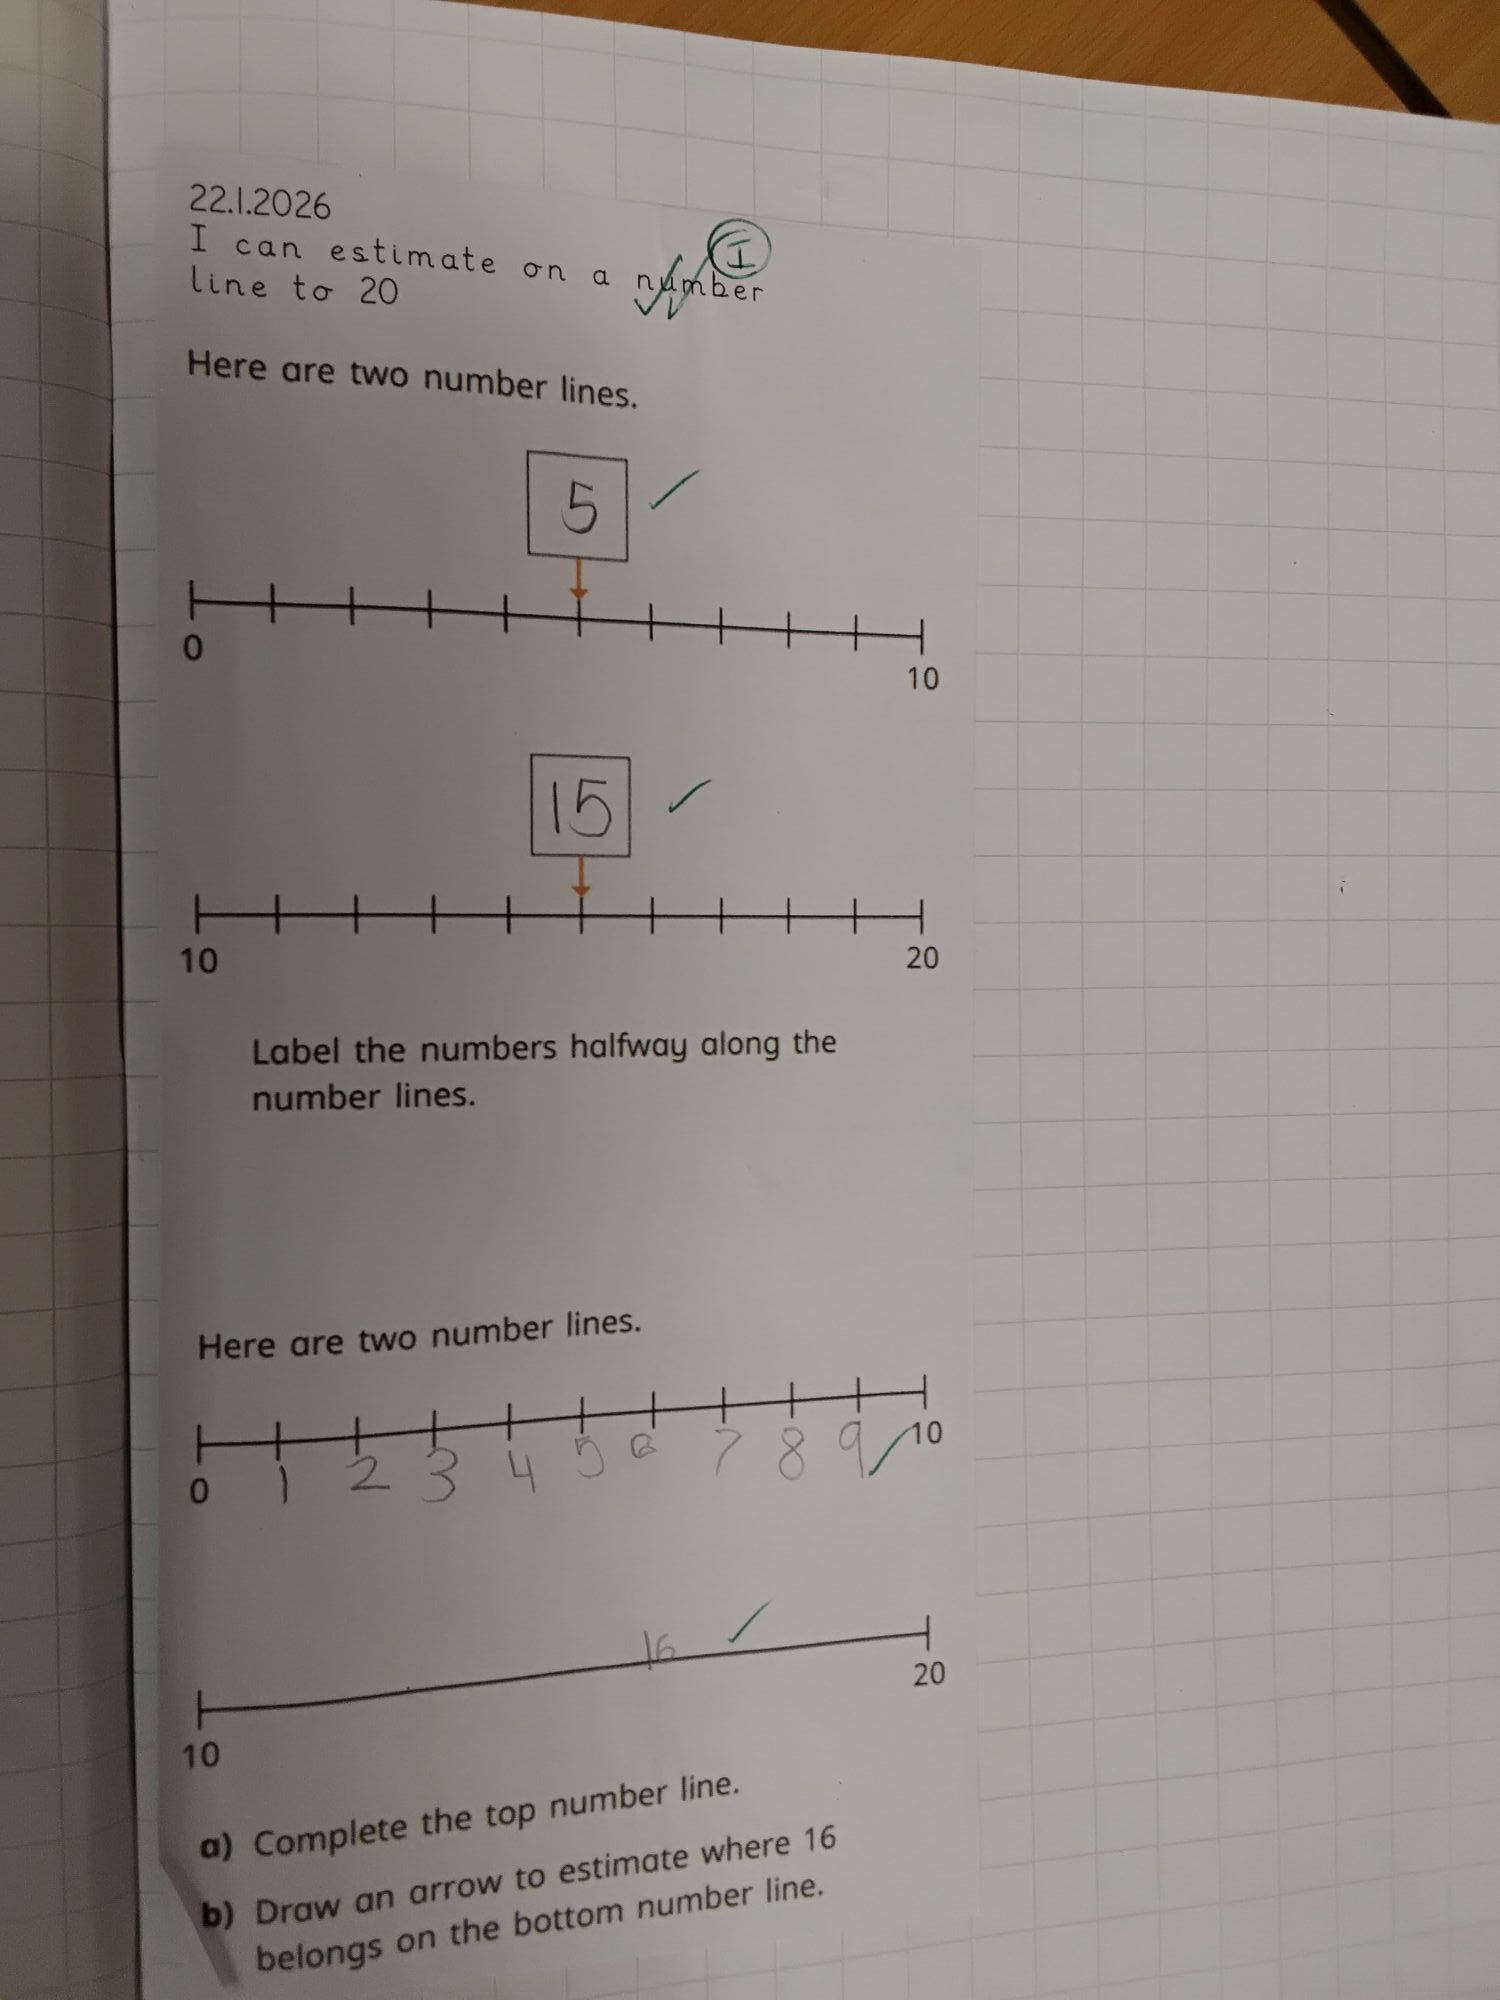 22.1.2026
I can estimate on a number
I
line to 20
Here are two number lines.
5
0 10
15
10 20
Label the numbers halfway along the
number lines.
Here are two number lines.
0 1 2 3 4 5 6 7 8 9 10
16
10 20
a) Complete the top number line.
b) Draw an arrow to estimate where 16
belongs on the bottom number line.